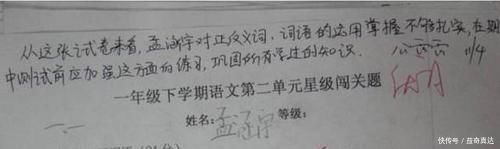 从这张试卷来看,孟涵宇对正反义词,词语的运用掌握不够扎实,在期
中测试前应加强这方面的练习,巩固所有学过的知识.
11/4
一年级下学期语文第二单元星级闯关题
姓名:孟涵宇 等级:
快传号/益奇真达